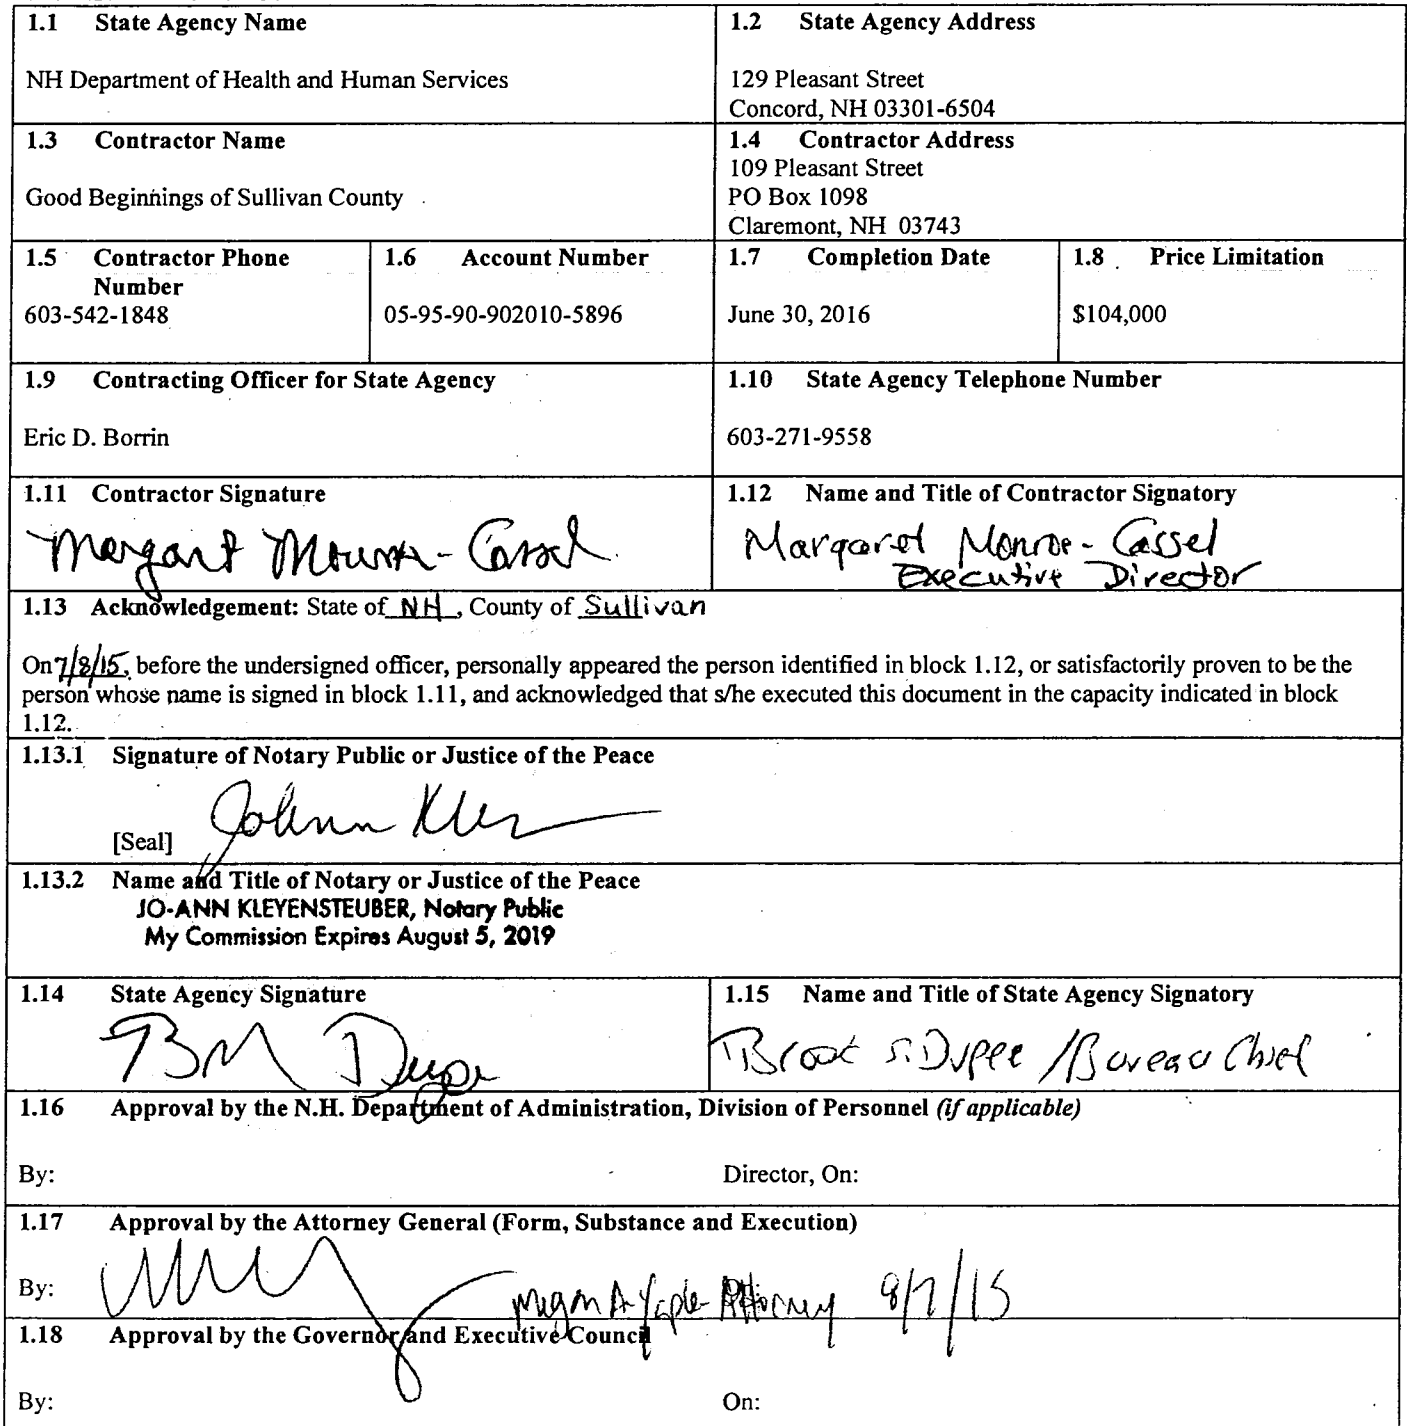 1.1 State Agency Name
NH Department of Health and Human Services
1.2 State Agency Address
129 Pleasant Street
Concord, NH 03301-6504
1.3 Contractor Name
Good Beginnings of Sullivan County
1.4 Contractor Address
109 Pleasant Street
PO Box 1098
Claremont, NH 03743
1.5 Contractor Phone
Number
603-542-1848
1.6 Account Number
05-95-90-902010-5896
1.7 Completion Date
June 30, 2016
1.8 Price Limitation
$104,000
1.9 Contracting Officer for State Agency
Eric D. Borrin
1.10 State Agency Telephone Number
603-271-9558
1.11 Contractor Signature
Margaret Monroe-Cassel
1.12 Name and Title of Contractor Signatory
Margaret Monroe-Cassel
Executive Director
1.13 Acknowledgement: State of NH, County of Sullivan
On 7/8/15, before the undersigned officer, personally appeared the person identified in block 1.12, or satisfactorily proven to be the
person whose name is signed in block 1.11, and acknowledged that s/he executed this document in the capacity indicated in block
1.12.
1.13.1 Signature of Notary Public or Justice of the Peace
[Seal]
1.13.2 Name and Title of Notary or Justice of the Peace
JO-ANN KLEYENSTEUBER, Notary Public
My Commission Expires August 5, 2019
1.14 State Agency Signature
1.15 Name and Title of State Agency Signatory
Brook S. Dupee / Bureau Chief
1.16 Approval by the N.H. Department of Administration, Division of Personnel (if applicable)
By:
Director, On:
1.17 Approval by the Attorney General (Form, Substance and Execution)
By:
Megan A. Yaple-Attorney
1.18 Approval by the Governor and Executive Council
By:
On: